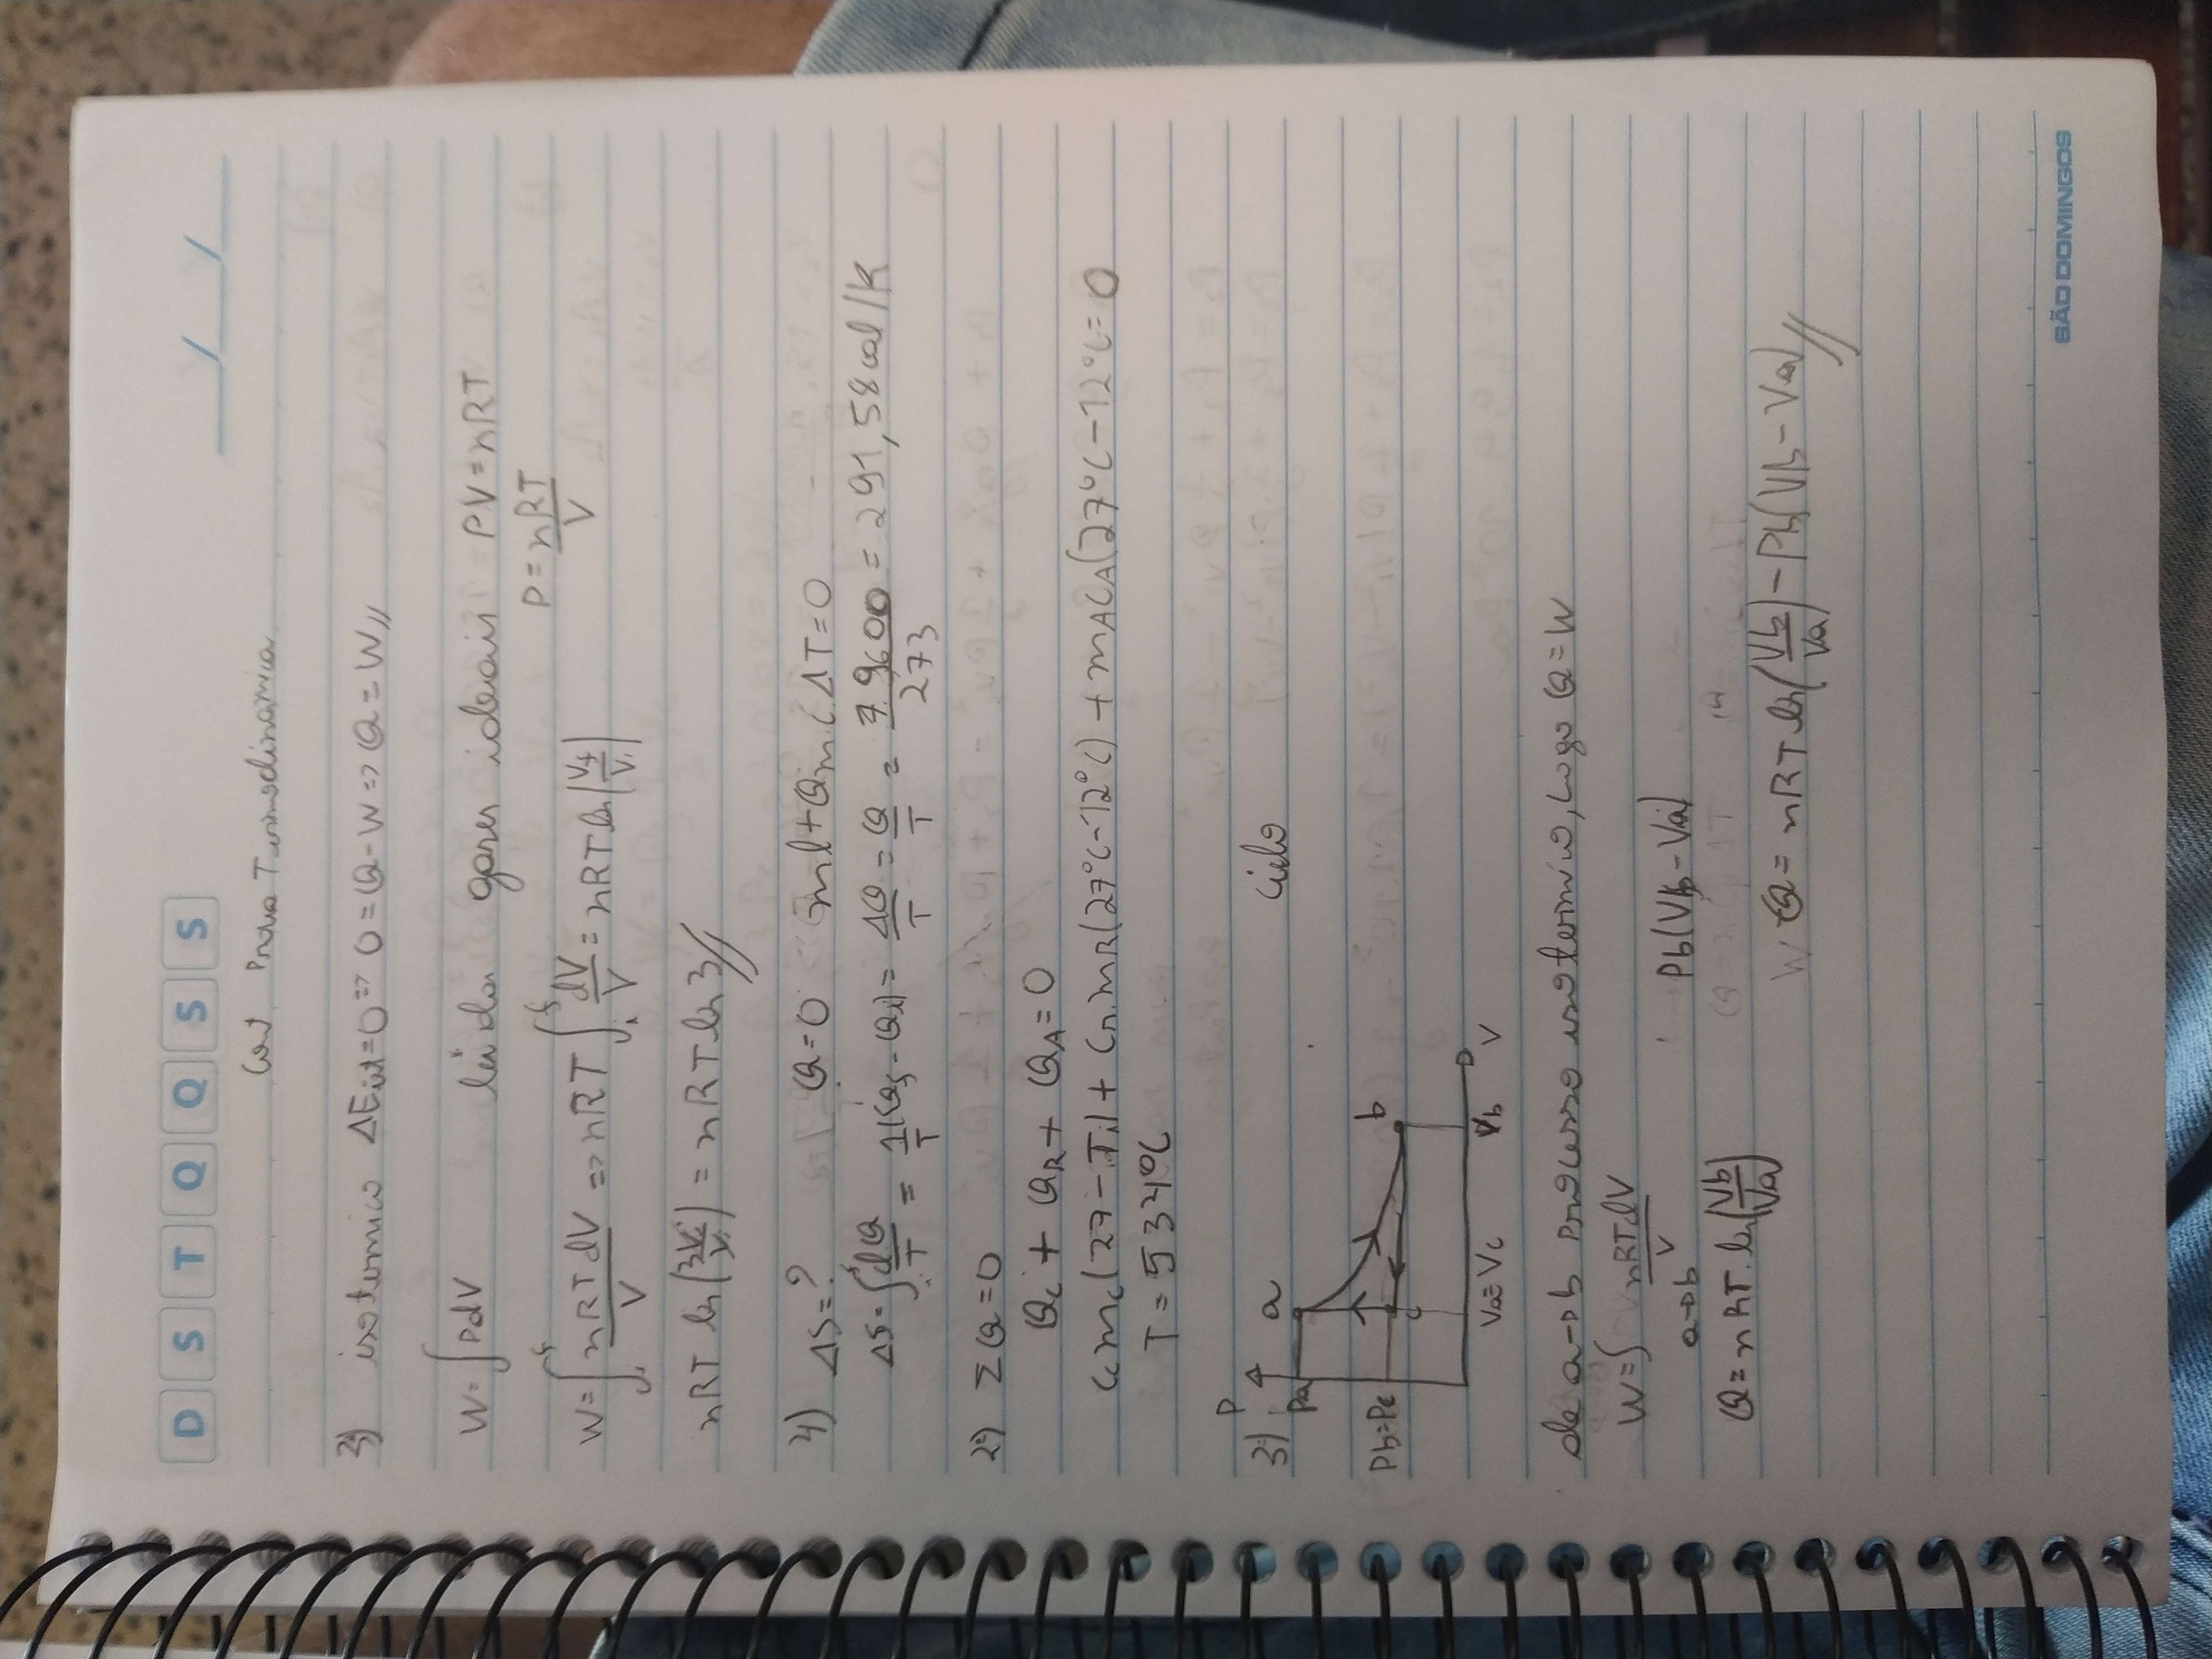 D S T Q Q S S
Prova Termodinamica
3) isotermico ΔEint=0 => 0=Q-W => Q=W//
W=∫PdV lei dos gases ideais PV=nRT
P=nRT/V
W=∫ᵢᶠ nRTdV/V => nRT ∫ᵢᶠ dV/V = nRT ln(Vf/Vi)
nRT ln(3Vi/Vi) = nRT ln3//
4) ΔS=? Q=0 ml+Qm.c.ΔT=0
ΔS=∫dQ/T = 1/T(Qf-Qi) = ΔQ/T = Q/T = 79600/273 = 291,58cal/k
2) ΣQ=0
Qc + QR + QA=0
Ccmc(27-Ti) + CR.mR(27°C-12°C) + mACA(27°C-12°C=0
T=534°C
3) P
Pa a ciclo
Pb=Pc c b
Va=Vc Vb V
de a→b processo isotermico, logo Q=W
W=∫nRTdV/V
a→b Pb(Vb-Va)
Q=nRT.ln(Vb/Va)
Q= nRT ln(Vb/Va)-Pb(Vb-Va)//
SÃO DOMINGOS